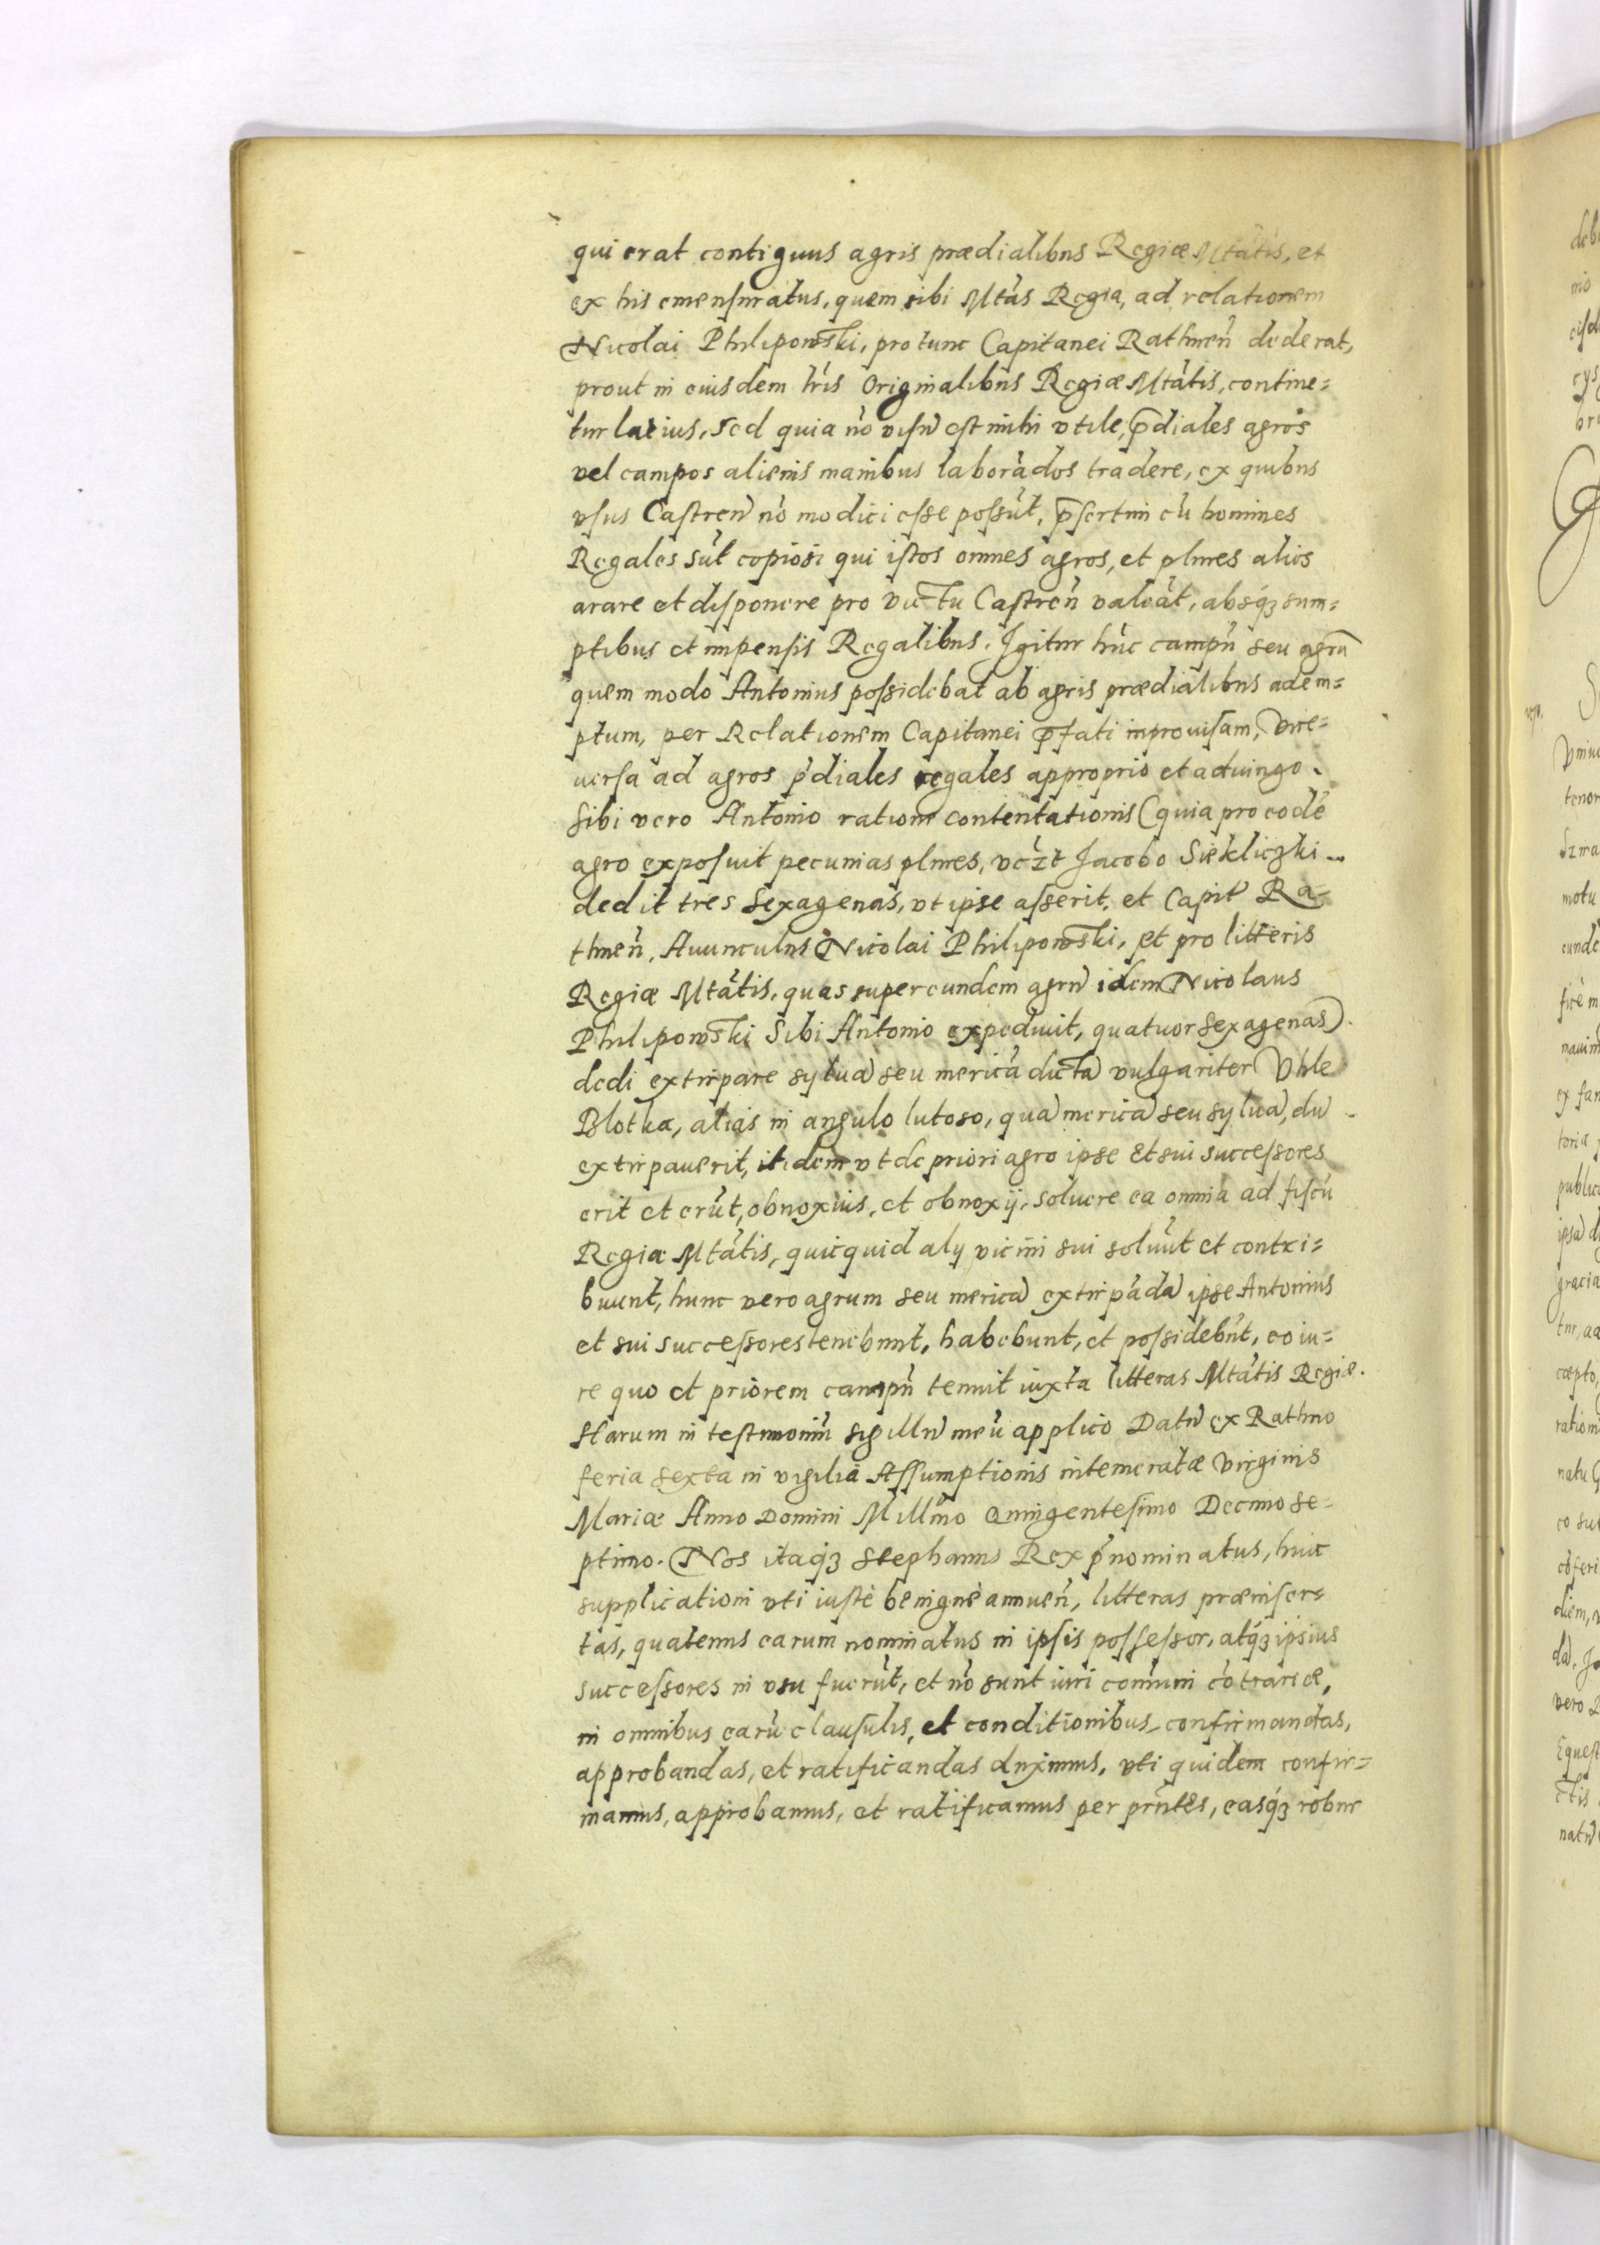 qui erat contiguus agris prædialibus Regiæ Mtãtis, et
ex his emensuratus, quem sibi Mtãs Regia, ad relationem
Nicolai Philipowski, pro tunc Capitanei Rathneñ dederat,
prout in eiusdem lr̃is Originalibus Regiæ Mtãtis, contine=
tur latius, Sed quia nõ visũ est mihi vtile, p̃diales agros
vel campos alienis manibus laborãdos tradere, ex quibus
vsus Castreñ nõ modici esse possũt, p̃sertim cũ homines
Regales sũt copiosi qui istos omnes agros, et plures alios
arare et disponere pro victu Castreñ valeãt, absq́ʒ sum=
ptibus et impensis Regalibus. Igitur hũc campũ seu agrũ
quem modo Antonius possidebat ab agris prædialibus adem=
ptum, per Relationem Capitanei p̃fati improuisam, vice=
uersa ad agros p̃diales regales approprio et aduingo.
Sibi vero Antonio ratione contentationis (quia pro eodẽ
agro exposuit pecunias plures, vcz̃t Jacobo Siekliczki
dedit tres Sexagenas, vt ipse asserit, et Capit̃ Ra-
thneñ, Auunculus Nicolai Philipowski, et pro litteris
Regiæ Mtãtis, quas super eundem agrũ idem Nicolaus
Philipowski Sibi Antonio expediuit, quatuor sexagenas).
dedi extirpare syluã seu mericã dictã vulgariter Vhle
Blotka, alias in angulo lutoso, quã mericã seu syluã, dũ
extirpauerit, itidem vt de priori agro ipse et sui successores
erit et erũt, obnoxius, et obnoxij, soluere ea omnia ad fiscũ
Regiæ Mtãtis, quicquid alij vicini sui soluũt et contri=
buunt, hunc vero agrum seu mericã extirpãdã ipse Antonius
et sui successores tenebunt, habebunt, et possidebũt, eo iu=
re quo et priorem campũ tenuit iuxta litteras Mtãtis Regiæ.
Harum in testimoniũ sigillũ meũ applico Datũ ex Rathno
feria sexta in vigilia Assumptionis intemeratæ virginis
Mariæ Anno Domini Millm̃o Quingentesimo Decimo se=
ptimo. Nos itaq́ʒ Stephanus Rex p̃nominatus, huic
supplicationi vti iustè benignè annueñ, litteras præinser=
tas, quatenus earum nominatus in ipsis possessor, atq́ʒ ipsius
successores in vsu fuerũt, et nõ sunt iuri com̃uni cõtrariæ,
in omnibus earũ clausulis, et conditionibus confirmandas,
approbandas, et ratificandas duximus, vti quidem confir=
mamus, approbamus, et ratificamus per pr̃ntes, easq́ʒ robur